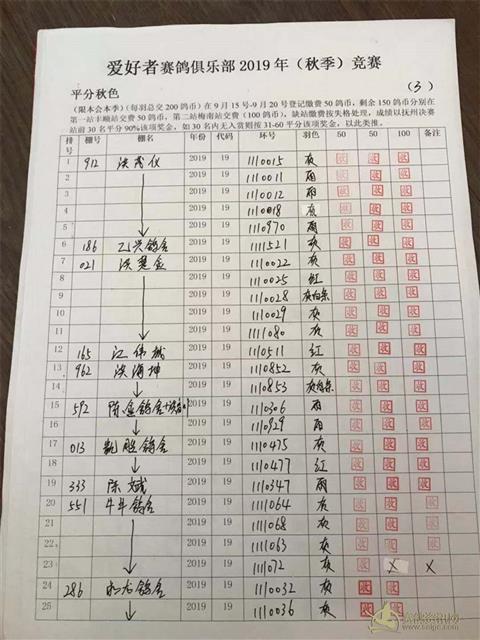 爱好者赛鸽俱乐部2019年（秋季）竞赛
平分秋色 （3）
（限本会本季）（每羽总交200鸽币）在9月15号-9月20号登记缴费50鸽币，剩余150鸽币分别在
第一站丰顺站交费50鸽币，第二站梅南站交费（100鸽币），缺站缴费按失格处理，成绩以抚州决赛
站前30名平分90%该项奖金，如30名内无入赏则按31-60平分该项奖金，以此类推。
排号 棚号 棚名 年份 代码 环号 羽色 50 50 100 备注
1 912 洪茂仪 2019 19 1110015 灰
2 2019 19 1110011 雨
3 2019 19 1110012 雨
4 2019 19 1110018 灰
5 2019 19 1110970 雨
6 186 乙兴鸽舍 2019 19 1111521 灰
7 021 洪楚金 2019 19 1110022 灰
8 2019 19 1110025 红
9 2019 19 1110028 灰白条
10 2019 19 1110029 灰
11 2019 19 1111080 灰
12 165 江伟斌 2019 19 1110511 红
13 962 洪海坤 2019 19 1110852 灰
14 2019 19 1110853 灰白条
15 592 陈金鸽舍 2019 19 1110306 雨
16 2019 19 1110929 雨
17 013 凯胜鸽舍 2019 19 1110475 灰
18 2019 19 1110477 红
19 333 陈斌 2019 19 1110347 雨
20 551 牛牛鸽舍 2019 19 1111064 灰
21 2019 19 1111068 灰
22 2019 19 1111063 灰
23 2019 19 1111072 灰 X X
24 286 鸽舍 2019 19 1110032 灰
25 2019 19 1110036 灰